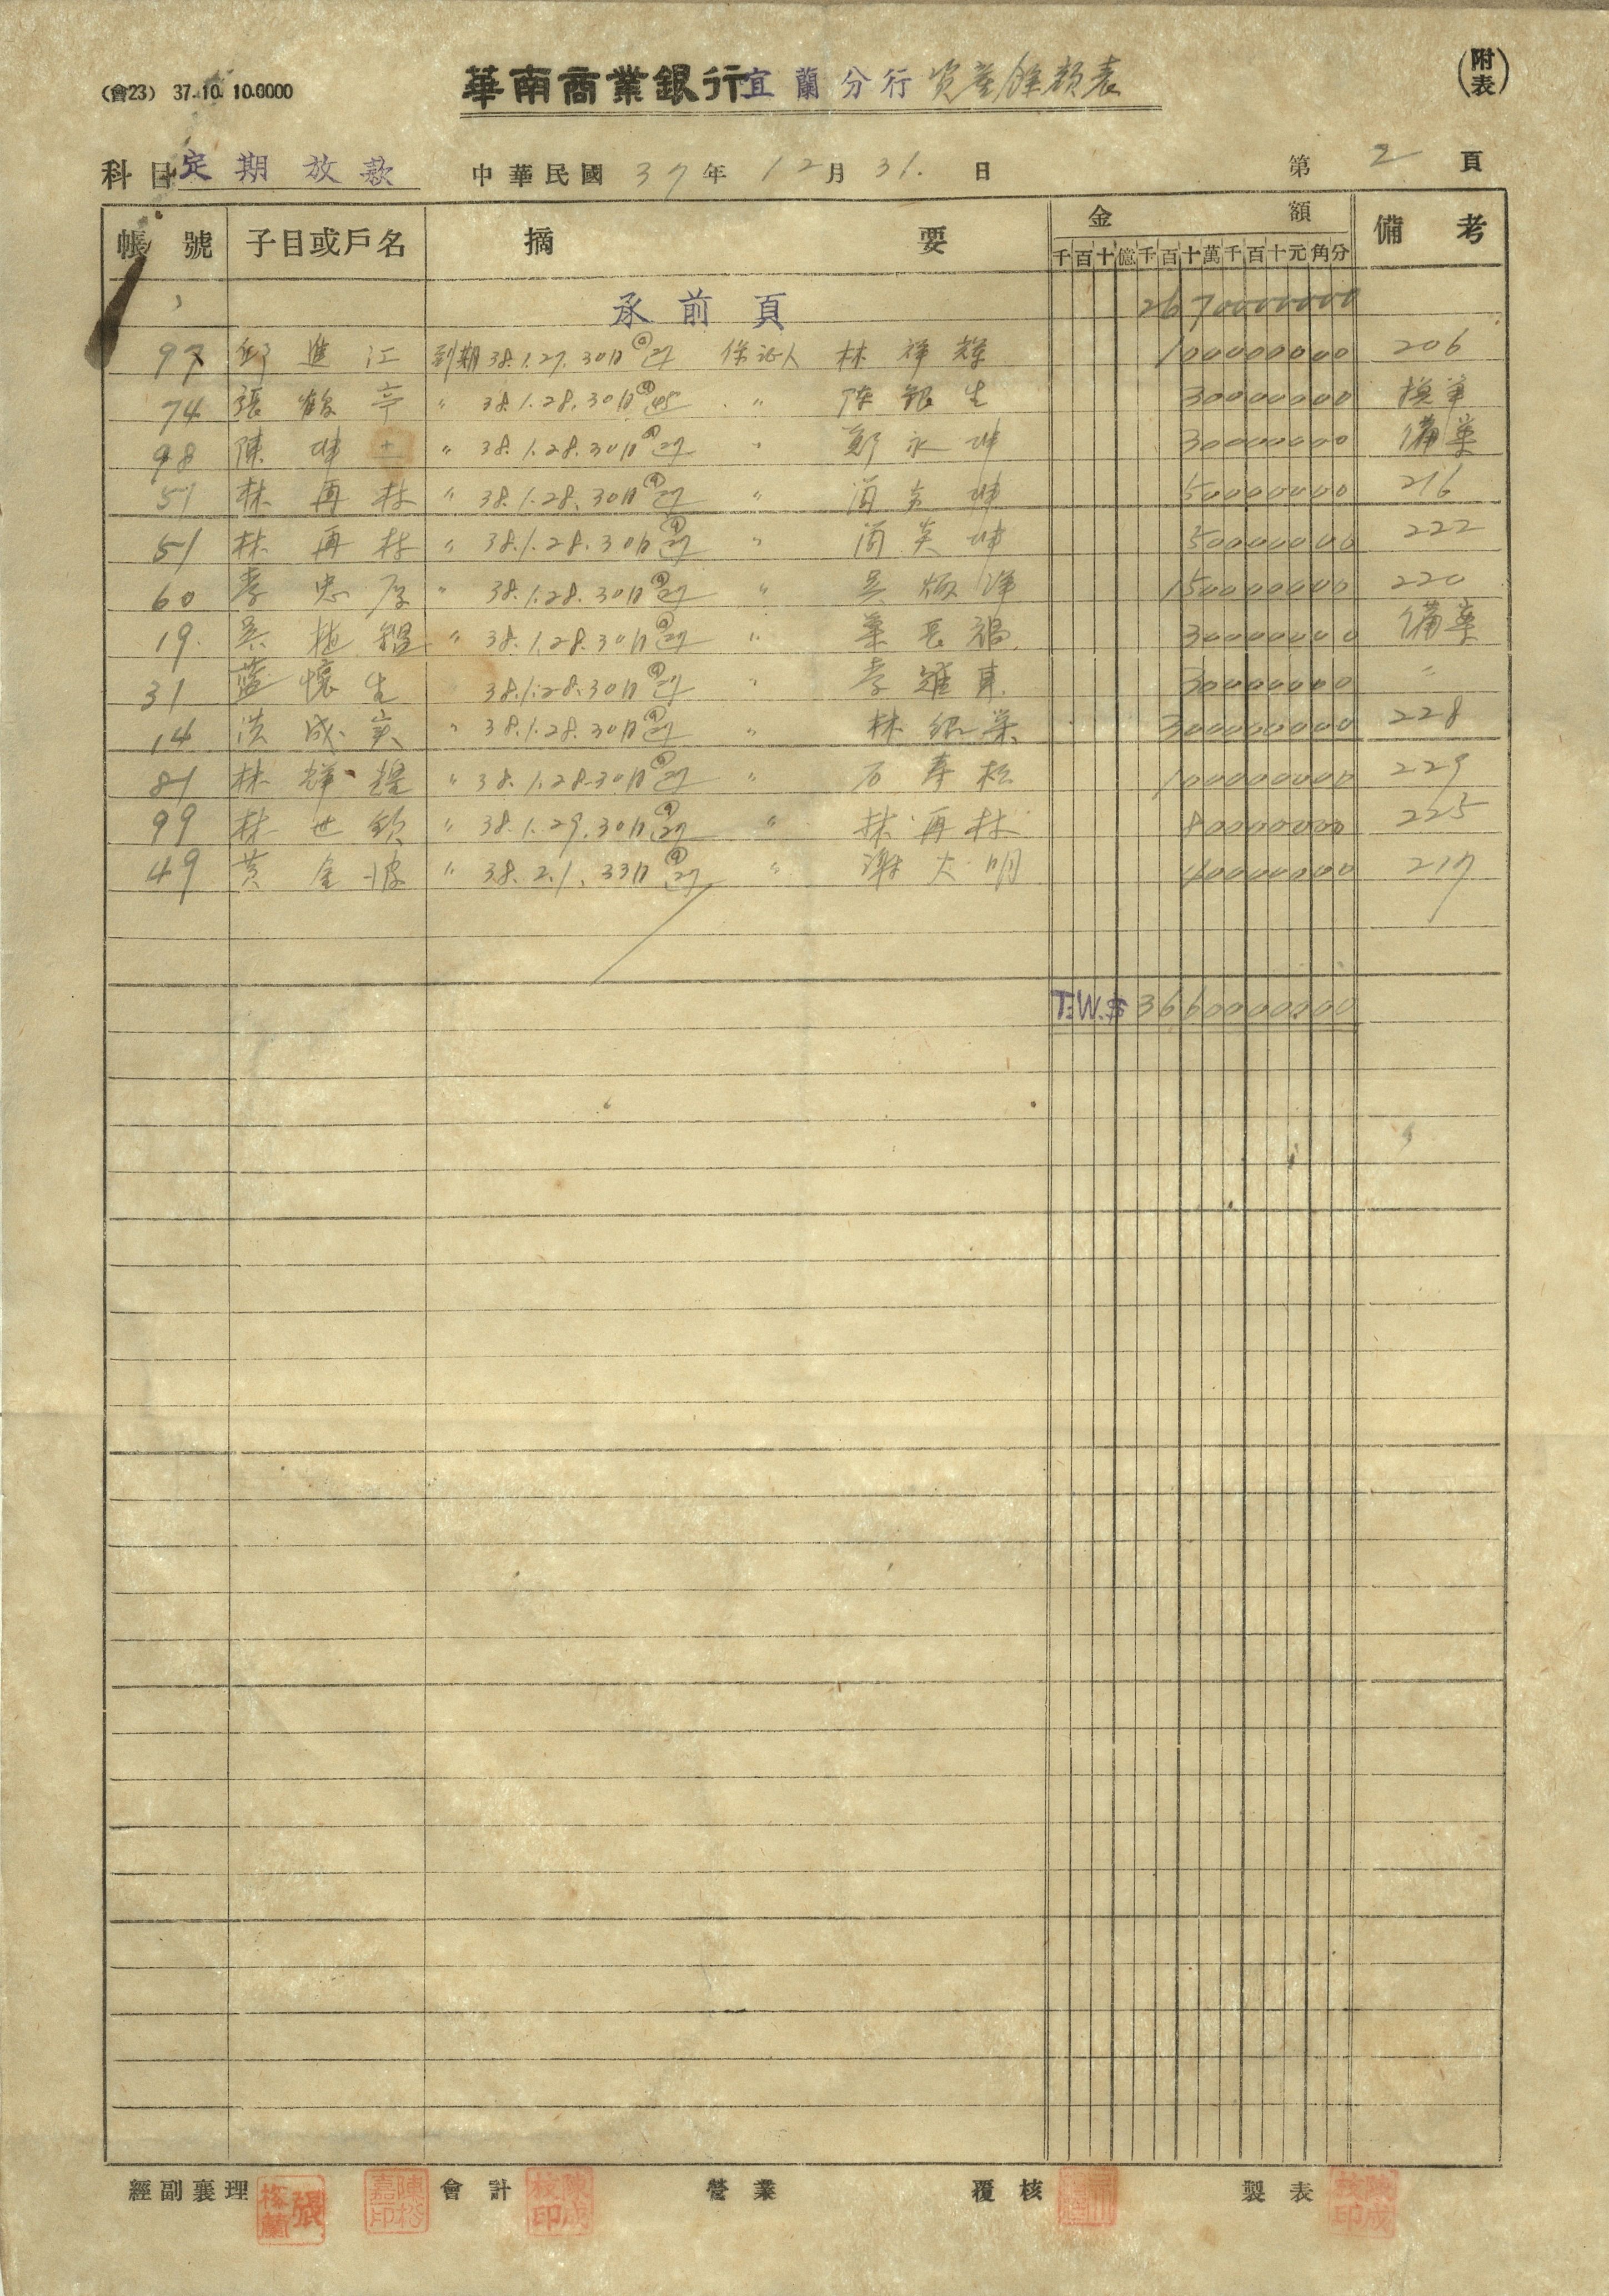 (會23) 37.10. 10.0000
華南商業銀行宜蘭分行資產餘額表
(附表)
科目 定期放款 中華民國 37年 12月 31.日 第 2 頁
帳號 子目或戶名 摘要 金額 備考
千百十億千百十萬千百十元角分
承前頁 26700000000
97 邱進江 到期 38.1.27. 30日 @27 保证人 林祥輝 1000000000 206
74 張鶴亭 〃 38.1.28. 30日 @45 〃 陳銀生 300000000
98 陳坤 〃 38.1.28. 30日 @27 〃 鄭永坤 300000000 備案
51 林再林 〃 38.1.28. 30日 @27 〃 坤 500000000 216
51 林再林 〃 38.1.28. 30日 @27 〃 坤 500000000 222
60 李忠厚 〃 38.1.28. 30日 @27 〃 吳 1500000000 220
19. 吳 〃 38.1.28. 30日 @27 〃 葉長福 300000000 備案
31 藍懷生 38.1.28. 30日 @27 〃 李 300000000 〃
14 洪成 〃 38.1.28. 30日 @27 〃 林 3000000000 228
81 林輝 〃 38.1.28. 30日 @27 〃 石壽松 1000000000 229
99 林世欽 〃 38.1.29. 30日 @27 〃 林再林 800000000 225
49 黃金波 〃 38.2.1. 33日 @27 〃 謝火明 400000000 217
T.W.$ 36600000000
經副襄理 會計 營業 覆核 製表